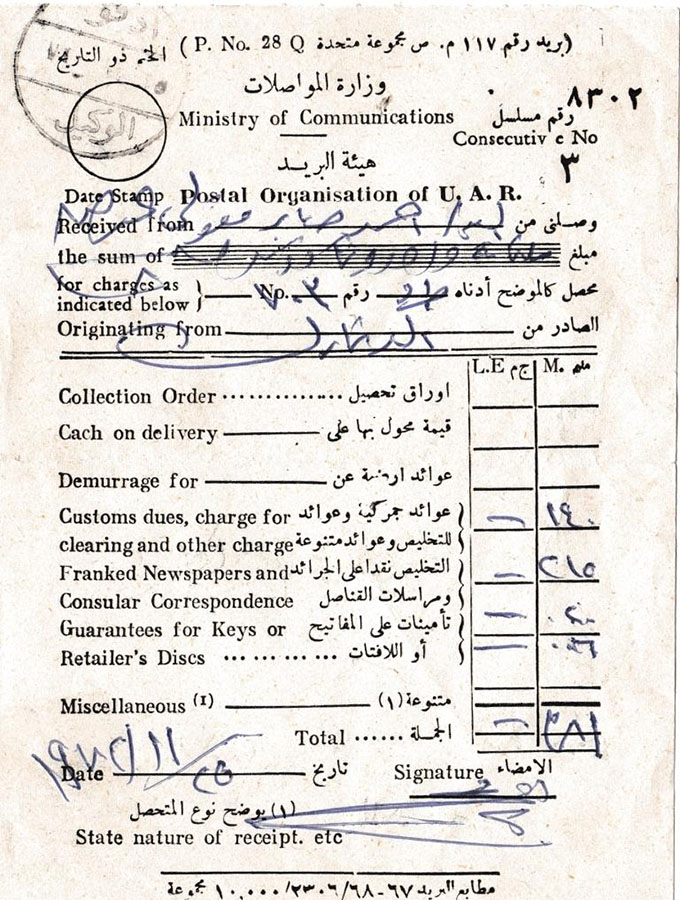 (بريد رقم ١١٧ م. ص مجموعة متحدة P. No. 28 Q)
الختم ذو التاريخ
ادفو
الوكيل
وزارة المواصلات
٨٣٠٢
رقم مسلسل
Ministry of Communications
Consecutive No
٣
هيئة البريد
Date Stamp Postal Organisation of U. A. R.
Received from وصلنى من
the sum of مبلغ
for charges as indicated below } No. رقم محصل كالموضح أدناه
Originating from الصادر من
L.E ج م M. مليم
Collection Order ................ اوراق تحصيل
Cach on delivery قيمة محول بها على
Demurrage for عوائد ارضية عن
Customs dues, charge for عوائد جمركية وعوائد — ١٤٠
clearing and other charge للتخليص وعوائد متنوعة
Franked Newspapers and التخليص نقدا على الجرائد — ٢١٥
Consular Correspondence ومراسلات القناصل
Guarantees for Keys or تأمينات على المفاتيح —
Retailer's Discs ... ... ... ... أو اللافتات —
Miscellaneous (1) متنوعة (١)
Total ...... الجملة —
Date تاريخ
Signature الامضاء
(١) يوضح نوع المتحصل
State nature of receipt. etc
مطابع البريد ٦٧-٦٨/٢٣٠٦/١٠,٠٠٠ مجموعة